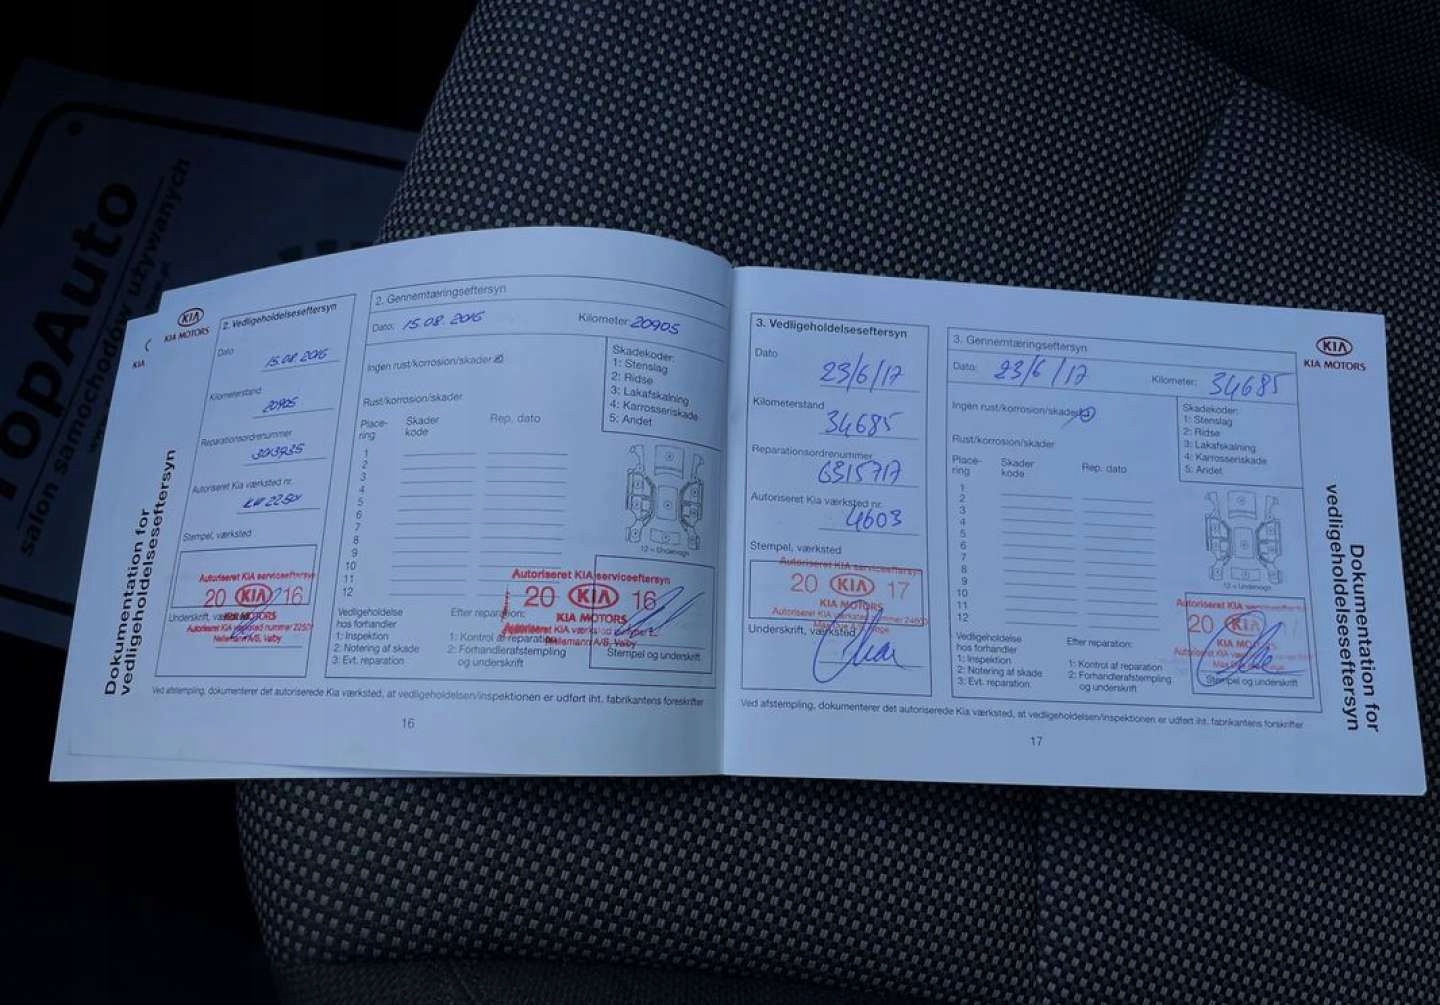 TopAuto
salon samochodów używanych
KIA
KIA
KIA MOTORS
Dokumentation for
vedligeholdelseseftersyn
2. Vedligeholdelseseftersyn
Dato
15.08.2016
Kilometerstand
20905
Reparationsordrenummer
Autoriseret Kia værksted nr.
Stempel, værksted
Autoriseret KIA serviceeftersyn
20 KIA 16
KIA MOTORS
Autoriseret KIA værksted nummer
Nellemann A/S, Valby
Underskrift, værksted
2. Gennemtæringseftersyn
Dato: 15.08.2016
Kilometer: 20905
Ingen rust/korrosion/skader
Rust/korrosion/skader
Place-
ring
Skader
kode
Rep. dato
1
2
3
4
5
6
7
8
9
10
11
12
Skadekoder:
1: Stenslag
2: Ridse
3: Lakafskalning
4: Karrosseriskade
5: Andet
12 = Undervogn
Vedligeholdelse
hos forhandler
1: Inspektion
2: Notering af skade
3: Evt. reparation
Efter reparation:
1: Kontrol af reparation
2: Forhandlerafstempling
og underskrift
Autoriseret KIA serviceeftersyn
20 KIA 16
KIA MOTORS
Autoriseret KIA værksted
Nellemann A/S, Valby
Stempel og underskrift
Ved afstempling, dokumenterer det autoriserede Kia værksted, at vedligeholdelsen/inspektionen er udført iht. fabrikantens forskrifter
16
3. Vedligeholdelseseftersyn
Dato
23/6/17
Kilometerstand
34685
Reparationsordrenummer
6315717
Autoriseret Kia værksted nr.
4603
Stempel, værksted
Autoriseret KIA serviceeftersyn
20 KIA 17
KIA MOTORS
Autoriseret KIA værksted nummer
Underskrift, værksted
3. Gennemtæringseftersyn
Dato: 23/6/17
Kilometer: 34685
Ingen rust/korrosion/skader
Rust/korrosion/skader
Place-
ring
Skader
kode
Rep. dato
1
2
3
4
5
6
7
8
9
10
11
12
Skadekoder:
1: Stenslag
2: Ridse
3: Lakafskalning
4: Karrosseriskade
5: Andet
12 = Undervogn
Vedligeholdelse
hos forhandler
1: Inspektion
2: Notering af skade
3: Evt. reparation
Efter reparation:
1: Kontrol af reparation
2: Forhandlerafstempling
og underskrift
Autoriseret KIA
20 KIA
KIA MOTORS
Autoriseret KIA
Stempel og underskrift
Ved afstempling, dokumenterer det autoriserede Kia værksted, at vedligeholdelsen/inspektionen er udført iht. fabrikantens forskrifter
17
KIA
KIA MOTORS
Dokumentation for
vedligeholdelseseftersyn